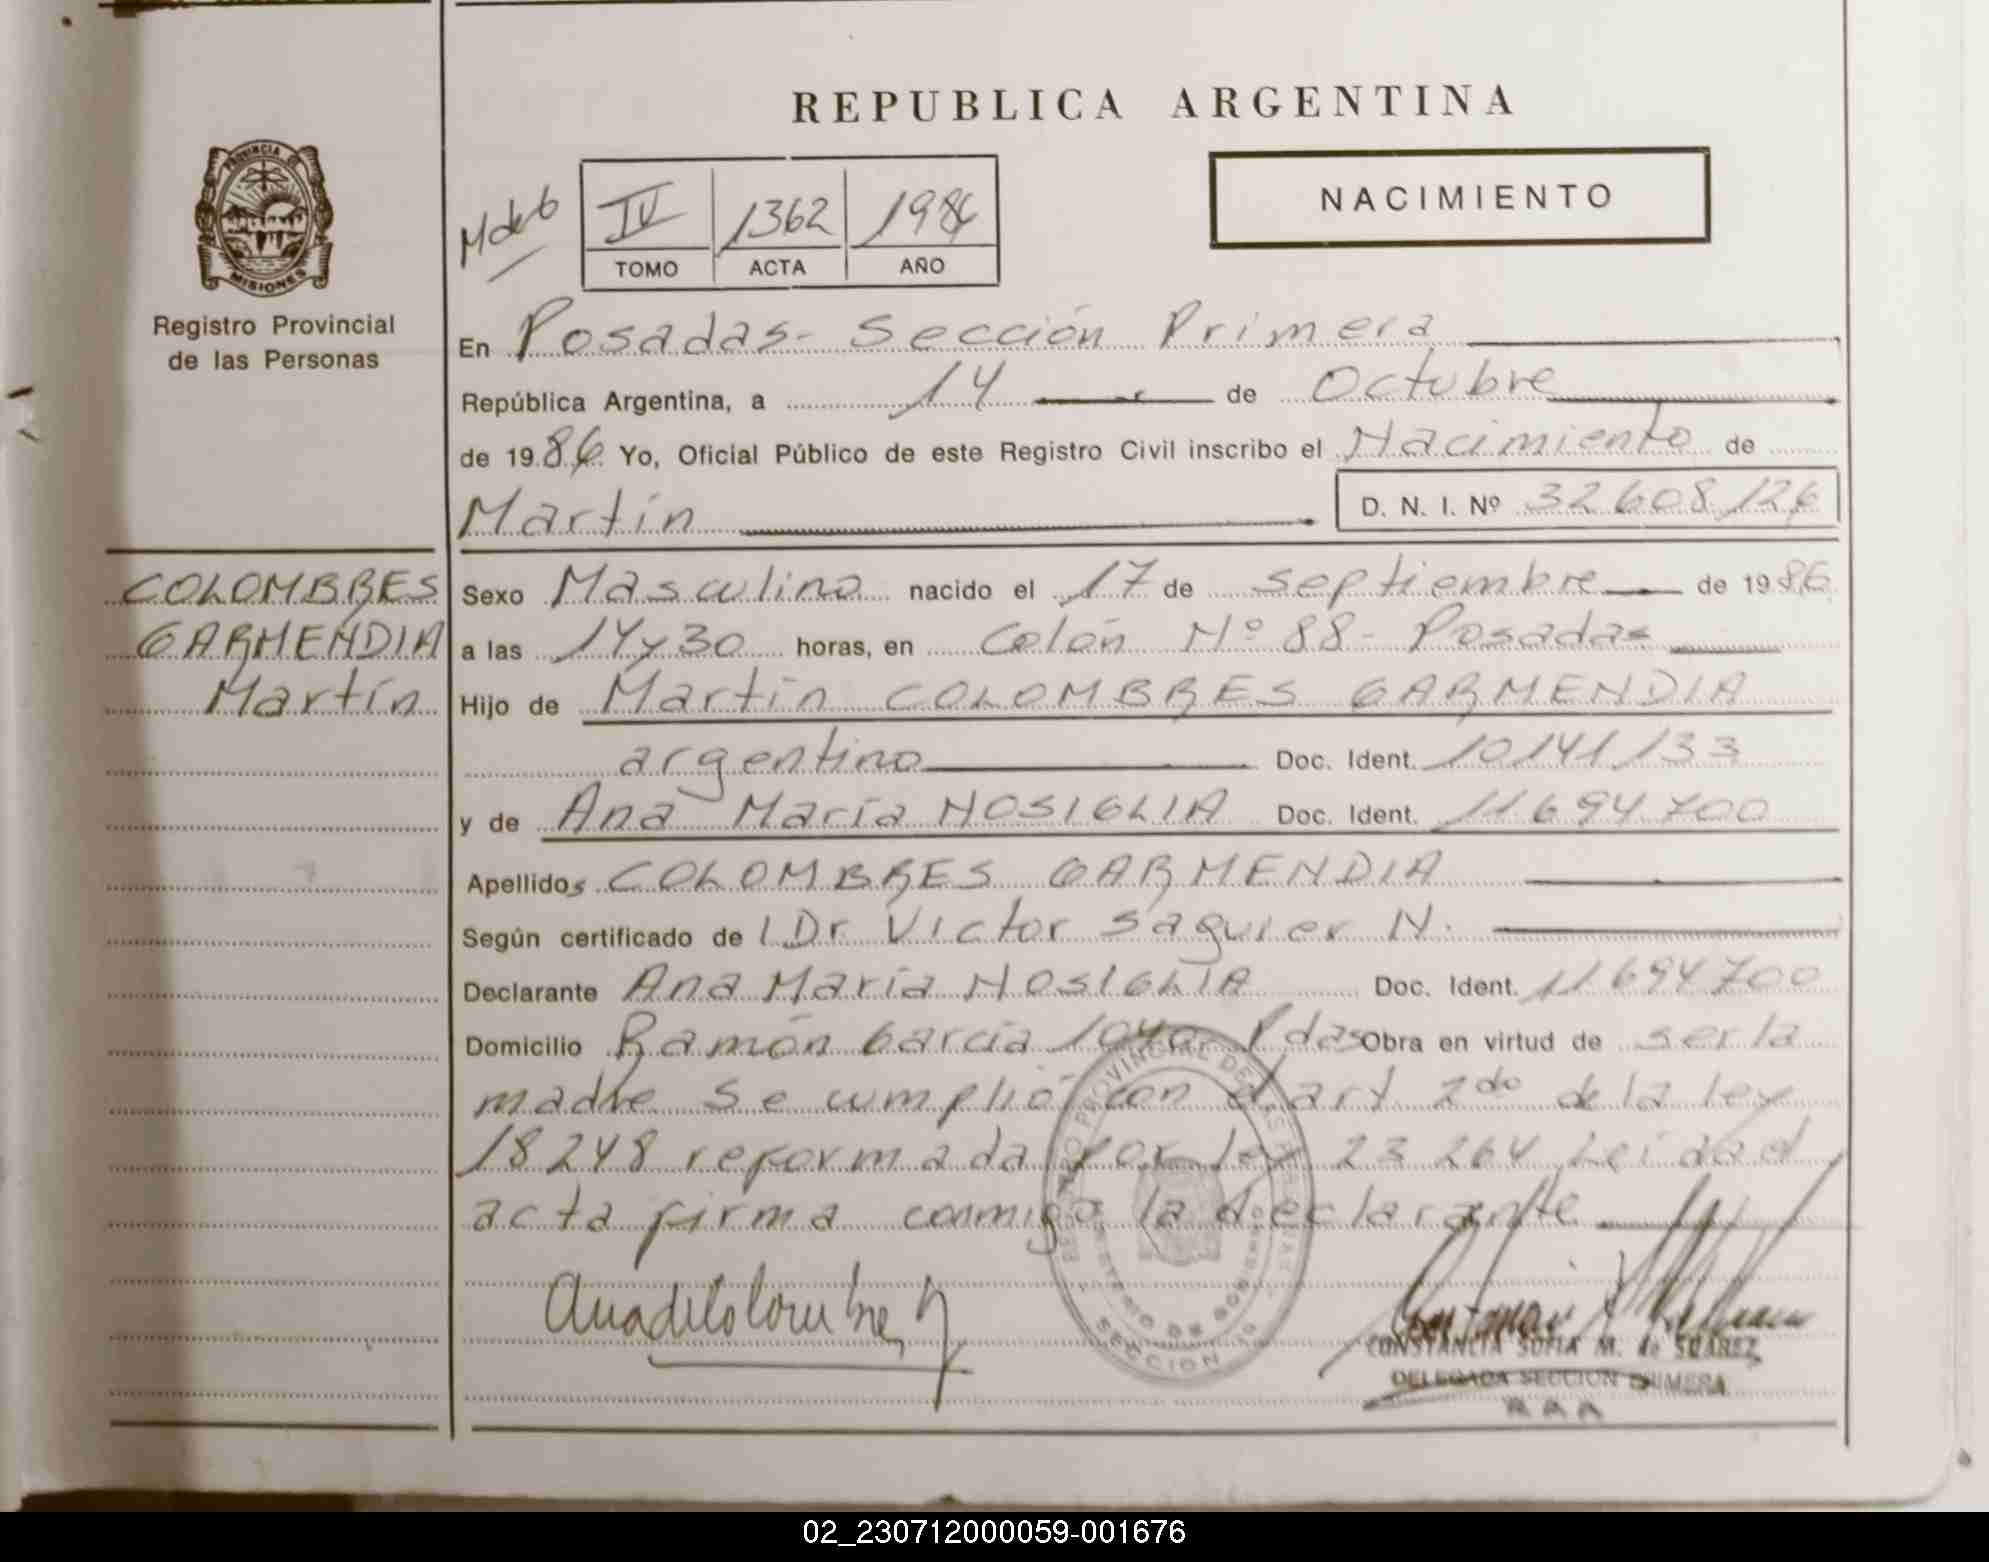 REPUBLICA ARGENTINA
NACIMIENTO
PROVINCIA DE
MISIONES
Registro Provincial
de las Personas
IV 1362 1986
TOMO ACTA AÑO
En Posadas - Sección Primera
República Argentina, a 14 de Octubre
de 1986 Yo, Oficial Público de este Registro Civil inscribo el Nacimiento de
Martín D. N. I. Nº 32608126
COLOMBRES
GARMENDIA
Martín
Sexo Masculino nacido el 17 de septiembre de 1986
a las 14 y 30 horas, en Colón Nº 88 - Posadas
Hijo de Martín COLOMBRES GARMENDIA
argentino Doc. Ident. 10141133
y de Ana María NOSIGLIA Doc. Ident. 11694700
Apellidos COLOMBRES GARMENDIA
Según certificado de l Dr. Victor Saguier N.
Declarante Ana María NOSIGLIA Doc. Ident. 11694700
Domicilio Ramón García 1040 Pdas Obra en virtud de ser la
madre se cumplió con el art 2do de la ley
18248 reformada por ley 23264 Leída el
acta firma conmigo la declarante
CONSTANCIA SOFIA M. de SUAREZ
DELEGADA SECCION PRIMERA
SECCION 1º
02_230712000059-001676